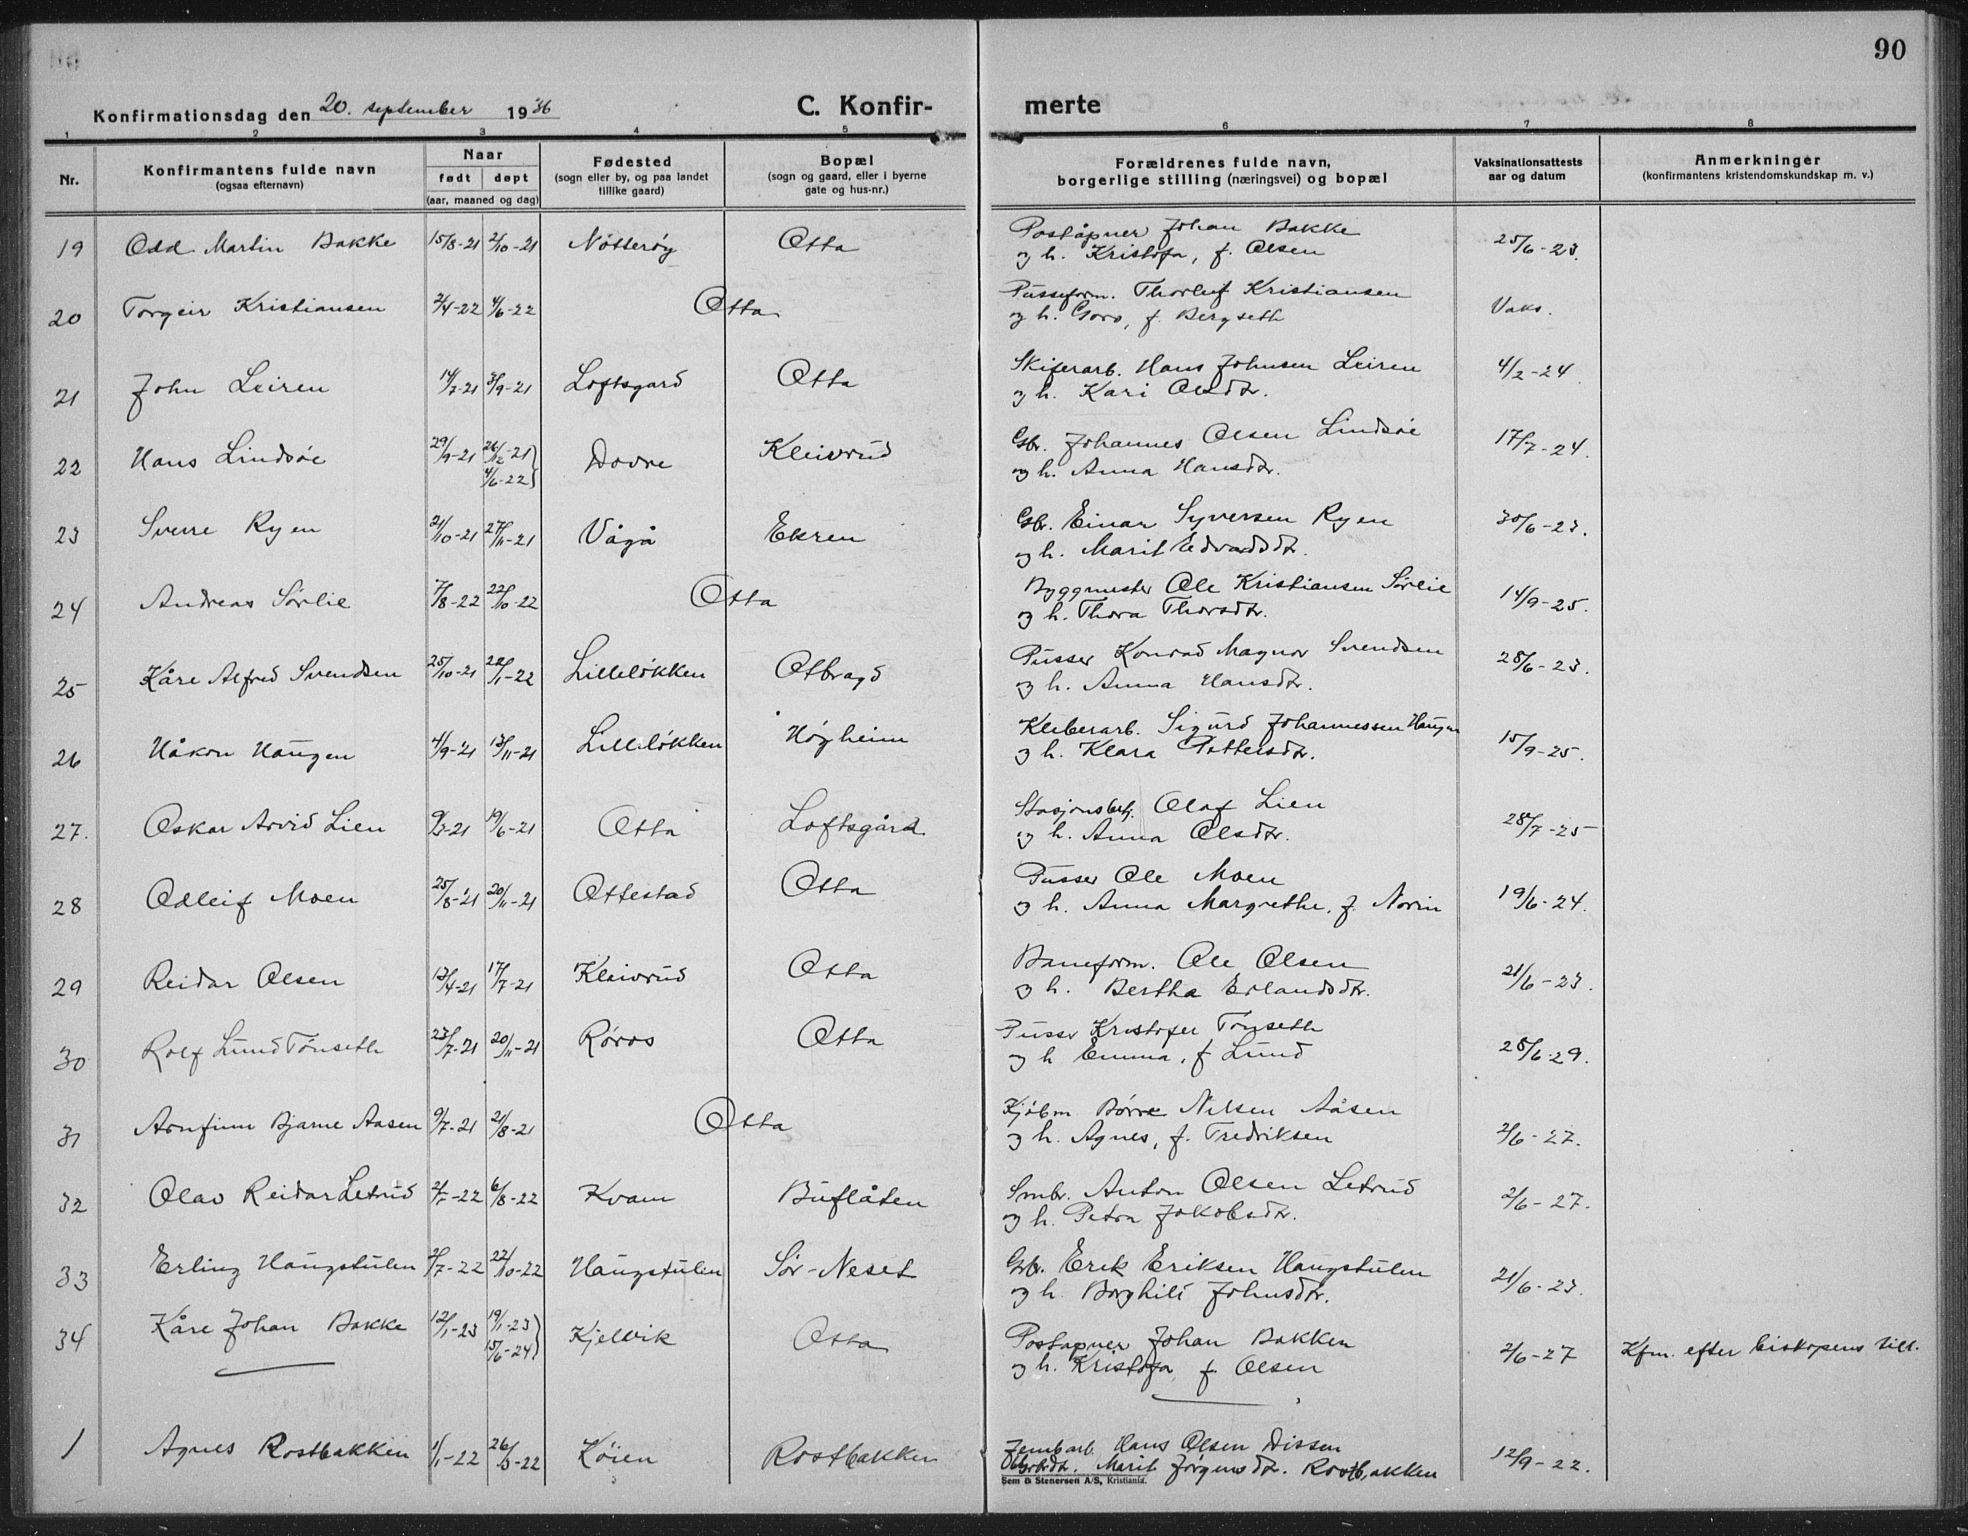 90
Konfirmationsdag den 20. september 1936
C. Konfirmerte
1 2 3 4 5 6 7 8
Nr. | Konfirmantens fulde navn (ogsaa efternavn) | Naar født døpt (aar, maaned og dag) | Fødested (sogn eller by, og paa landet tillike gaard) | Bopæl (sogn og gaard, eller i byerne gate og hus-nr.) | Forældrenes fulde navn, borgerlige stilling (næringsvei) og bopæl | Vaksinationsattests aar og datum | Anmerkninger (konfirmantens kristendomskundskap m. v.)
19 Odd Martin Bakke 15/8-21 2/10-21 Nøtterøy Otta Poståpner Johan Bakke 25/6-23.
og h. Kristofa, f. Olsen
20 Torgeir Kristiansen 2/4-22 4/6-22 Otta Pusseform. Thorleif Kristiansen Vaks.
og h. Goro, f. Bergseth
21 John Leiren 14/7-21 3/9-21 Loftsgard Otta Skiferarb. Hans Johnsen Leiren 4/2-24
og h. Kari Olsdtr.
22 Hans Lindsøe 29/9-21 26/12-21 Dovre Kleivrud Gbr. Johannes Olsen Lindsøe 17/7-24.
4/6-22 og h. Anna Hansdtr.
23 Sverre Ryen 21/10-21 27/11-21 Vågå Ekren Gbr. Einar Syversen Ryen 30/6-23.
og h. Marit Edvardsdtr.
24 Andreas Sørlie 7/8-22 22/10-22 Otta Byggmester Ole Kristiansen Sørlie 14/9-25.
og h. Thora Thorsdtr.
25 Kåre Alfred Svendsen 25/10-21 22/1-22 Lilleløkken Ottbragd Pusser Konrad Magnor Svendsen 28/6-23.
og h. Anna Hansdtr.
26 Håkon Haugen 4/9-21 13/11-21 Lilleløkken Høgheim Kleberarb. Sigurd Johannessen Haugen 15/9-25.
og h. Klara Pettersdtr.
27. Oskar Arvid Lien 9/3-21 19/6-21 Otta Loftsgård Stasjonsbetj. Olaf Lien 28/7-25
og h. Anna Olsdtr.
28 Odleif Moen 25/8-21 20/11-21 Ottestad Otta Pusser Ole Moen 19/6-24.
og h. Anna Margrethe, f. Norin
29 Reidar Olsen 13/4-21 17/7-21 Kleivrud Otta Baneform. Ole Olsen 21/6-23.
og h. Bertha Erlandsdtr.
30 Rolf Lund Tønseth 23/7-21 20/11-21 Røros Otta Pusser Kristofer Tønseth 28/6-29.
og h Emma, f Lund
31 Arnfinn Bjarne Aasen 9/7-21 21/8-21 Otta Kjøbm. Børre Nilsen Aåsen 2/6-27.
og h. Agnes, f. Fredriksen
32 Olav Reidar Letrud 2/7-22 6/8-22 Kvam Buflåten Smbr. Anton Olsen Letrud 2/6-27.
og h. Petra Jakobsdtr.
33 Erling Haugstulen 2/7-22 22/10-22 Haugstulen Sør-Neset Gbr. Erik Eriksen Haugstulen 21/6-23.
og h. Borghild Johnsdtr.
34 Kåre Johan Bakke 12/1-23 19/1-23 Kjelvik Otta Postapner Johan Bakken 2/6-27 Kfm. efter biskopens till.
15/6-24 og h. Kristofa f Olsen
1 Agnes Rostbakken 1/1-22 26/3-22 Køien Rostbakken Jernbarb. Hans Olsen Dissen 12/9-22.
Marit Jørgensdtr. Rostbakken
Sem & Stenersen A/S, Kristiania.